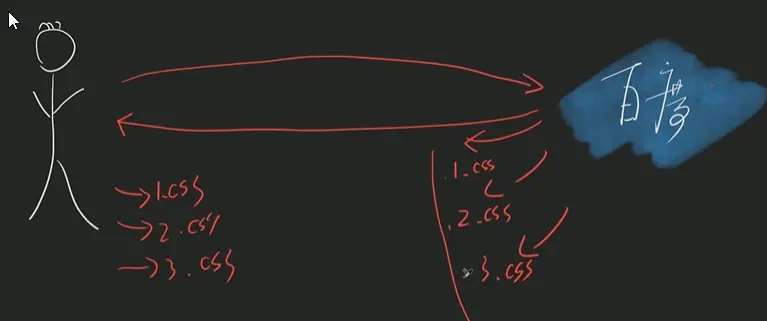 百度
1.css
2.css
3.css
1.css
2.css
3.css